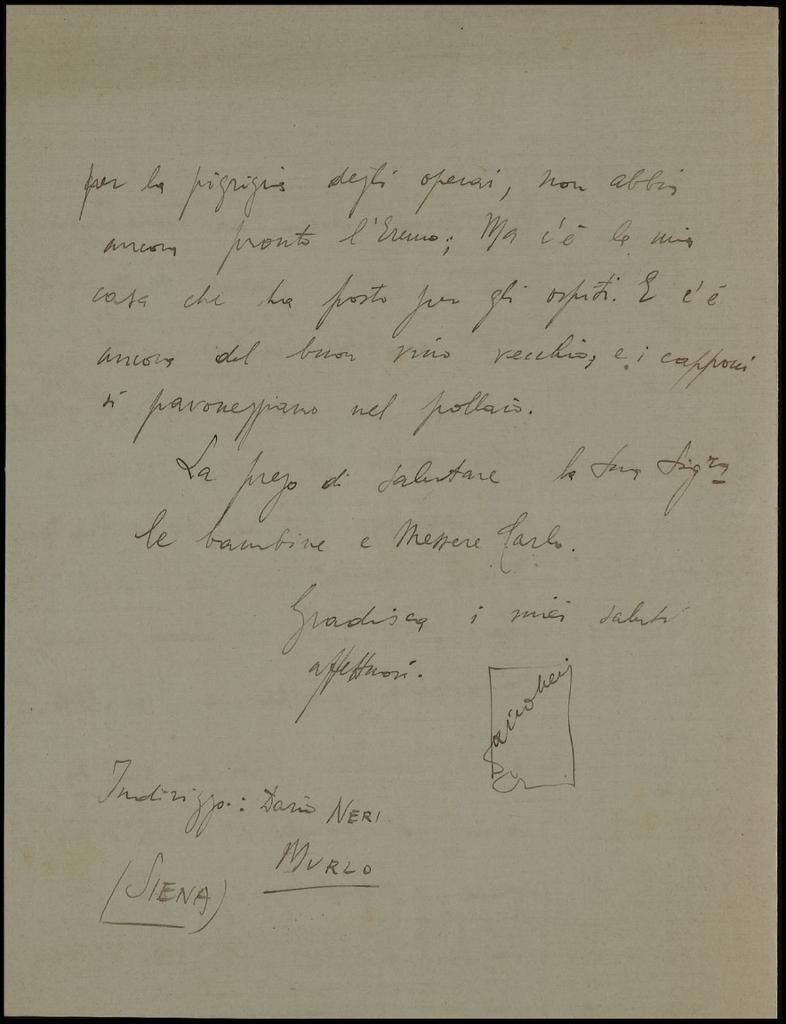 per la pigrizia degli operai, non abbia
ancora pronto l'Eremo; Ma c'è la mia
casa che ha posto per gli ospiti. E c'è
ancora del buon vino vecchio, e i capponi
si pavoneggiano nel pollaio.
La prego di salutare la Sua Sig.ra
le bambine e Messere Carlo.
Gradisca i miei saluti
affettuosi.
Dario Neri
Indirizzo: Dario NERI
MURLO
(SIENA)